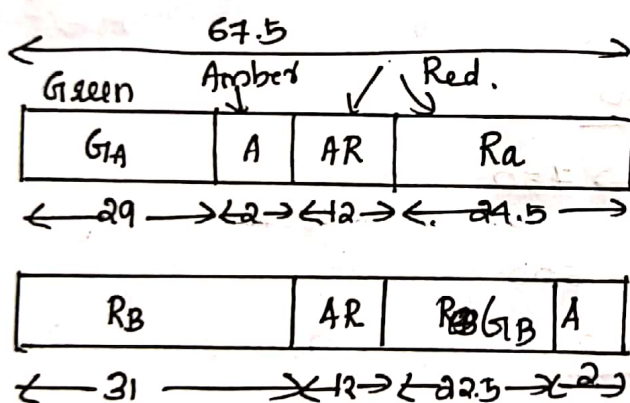 67.5
Green Amber Red.
GA A AR Ra
29 2 12 24.5
RB AR GB A
31 12 22.5 2